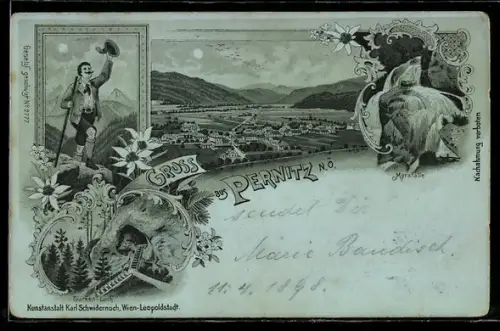 Gesetzl. geschützt Nº 2777
GRUSS
aus PERNITZ N.Ö.
Myrafälle
Nachahmung verboten
sendet Dir
Marie Bandisch.
11.4.1898.
Kunstanstalt Karl Schwidernoch, Wien-Leopoldstadt.